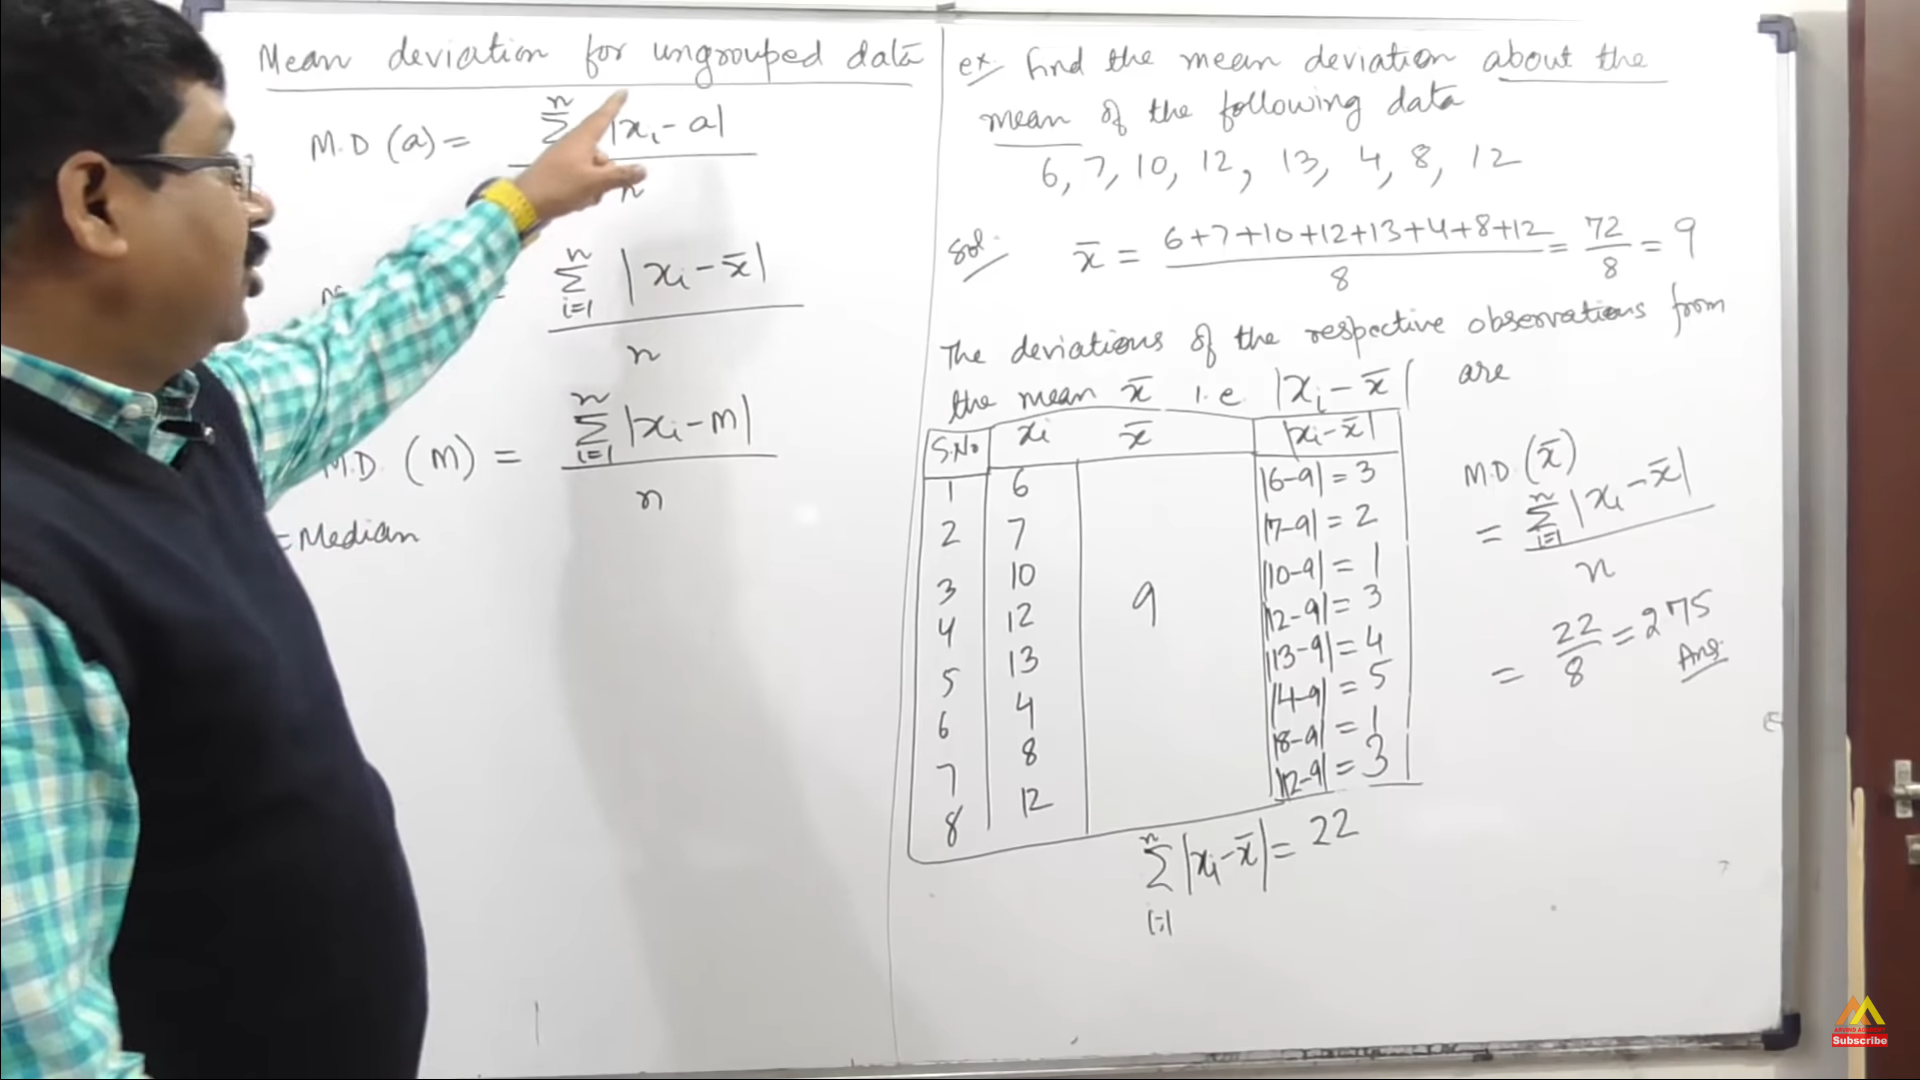 Mean deviation for ungrouped data
M.D (a) = n Σ |xi - a|
n
n Σ i=1 |xi - x̄|
n
M.D. (M) = n Σ i=1 |xi - M|
n
= Median
ex. find the mean deviation about the
mean of the following data
6, 7, 10, 12, 13, 4, 8, 12
Sol. x̄ = 6+7+10+12+13+4+8+12 / 8 = 72 / 8 = 9
The deviations of the respective observations from
the mean x̄ i.e |xi - x̄| are
S.No xi x̄ |xi - x̄|
1 6 |6-9| = 3
2 7 |7-9| = 2
3 10 |10-9| = 1
4 12 9 |12-9| = 3
5 13 |13-9| = 4
6 4 |4-9| = 5
7 8 |8-9| = 1
8 12 |12-9| = 3
n Σ i=1 |xi - x̄| = 22
M.D (x̄)
= n Σ i=1 |xi - x̄|
n
= 22 / 8 = 2.75
Ans.
Subscribe